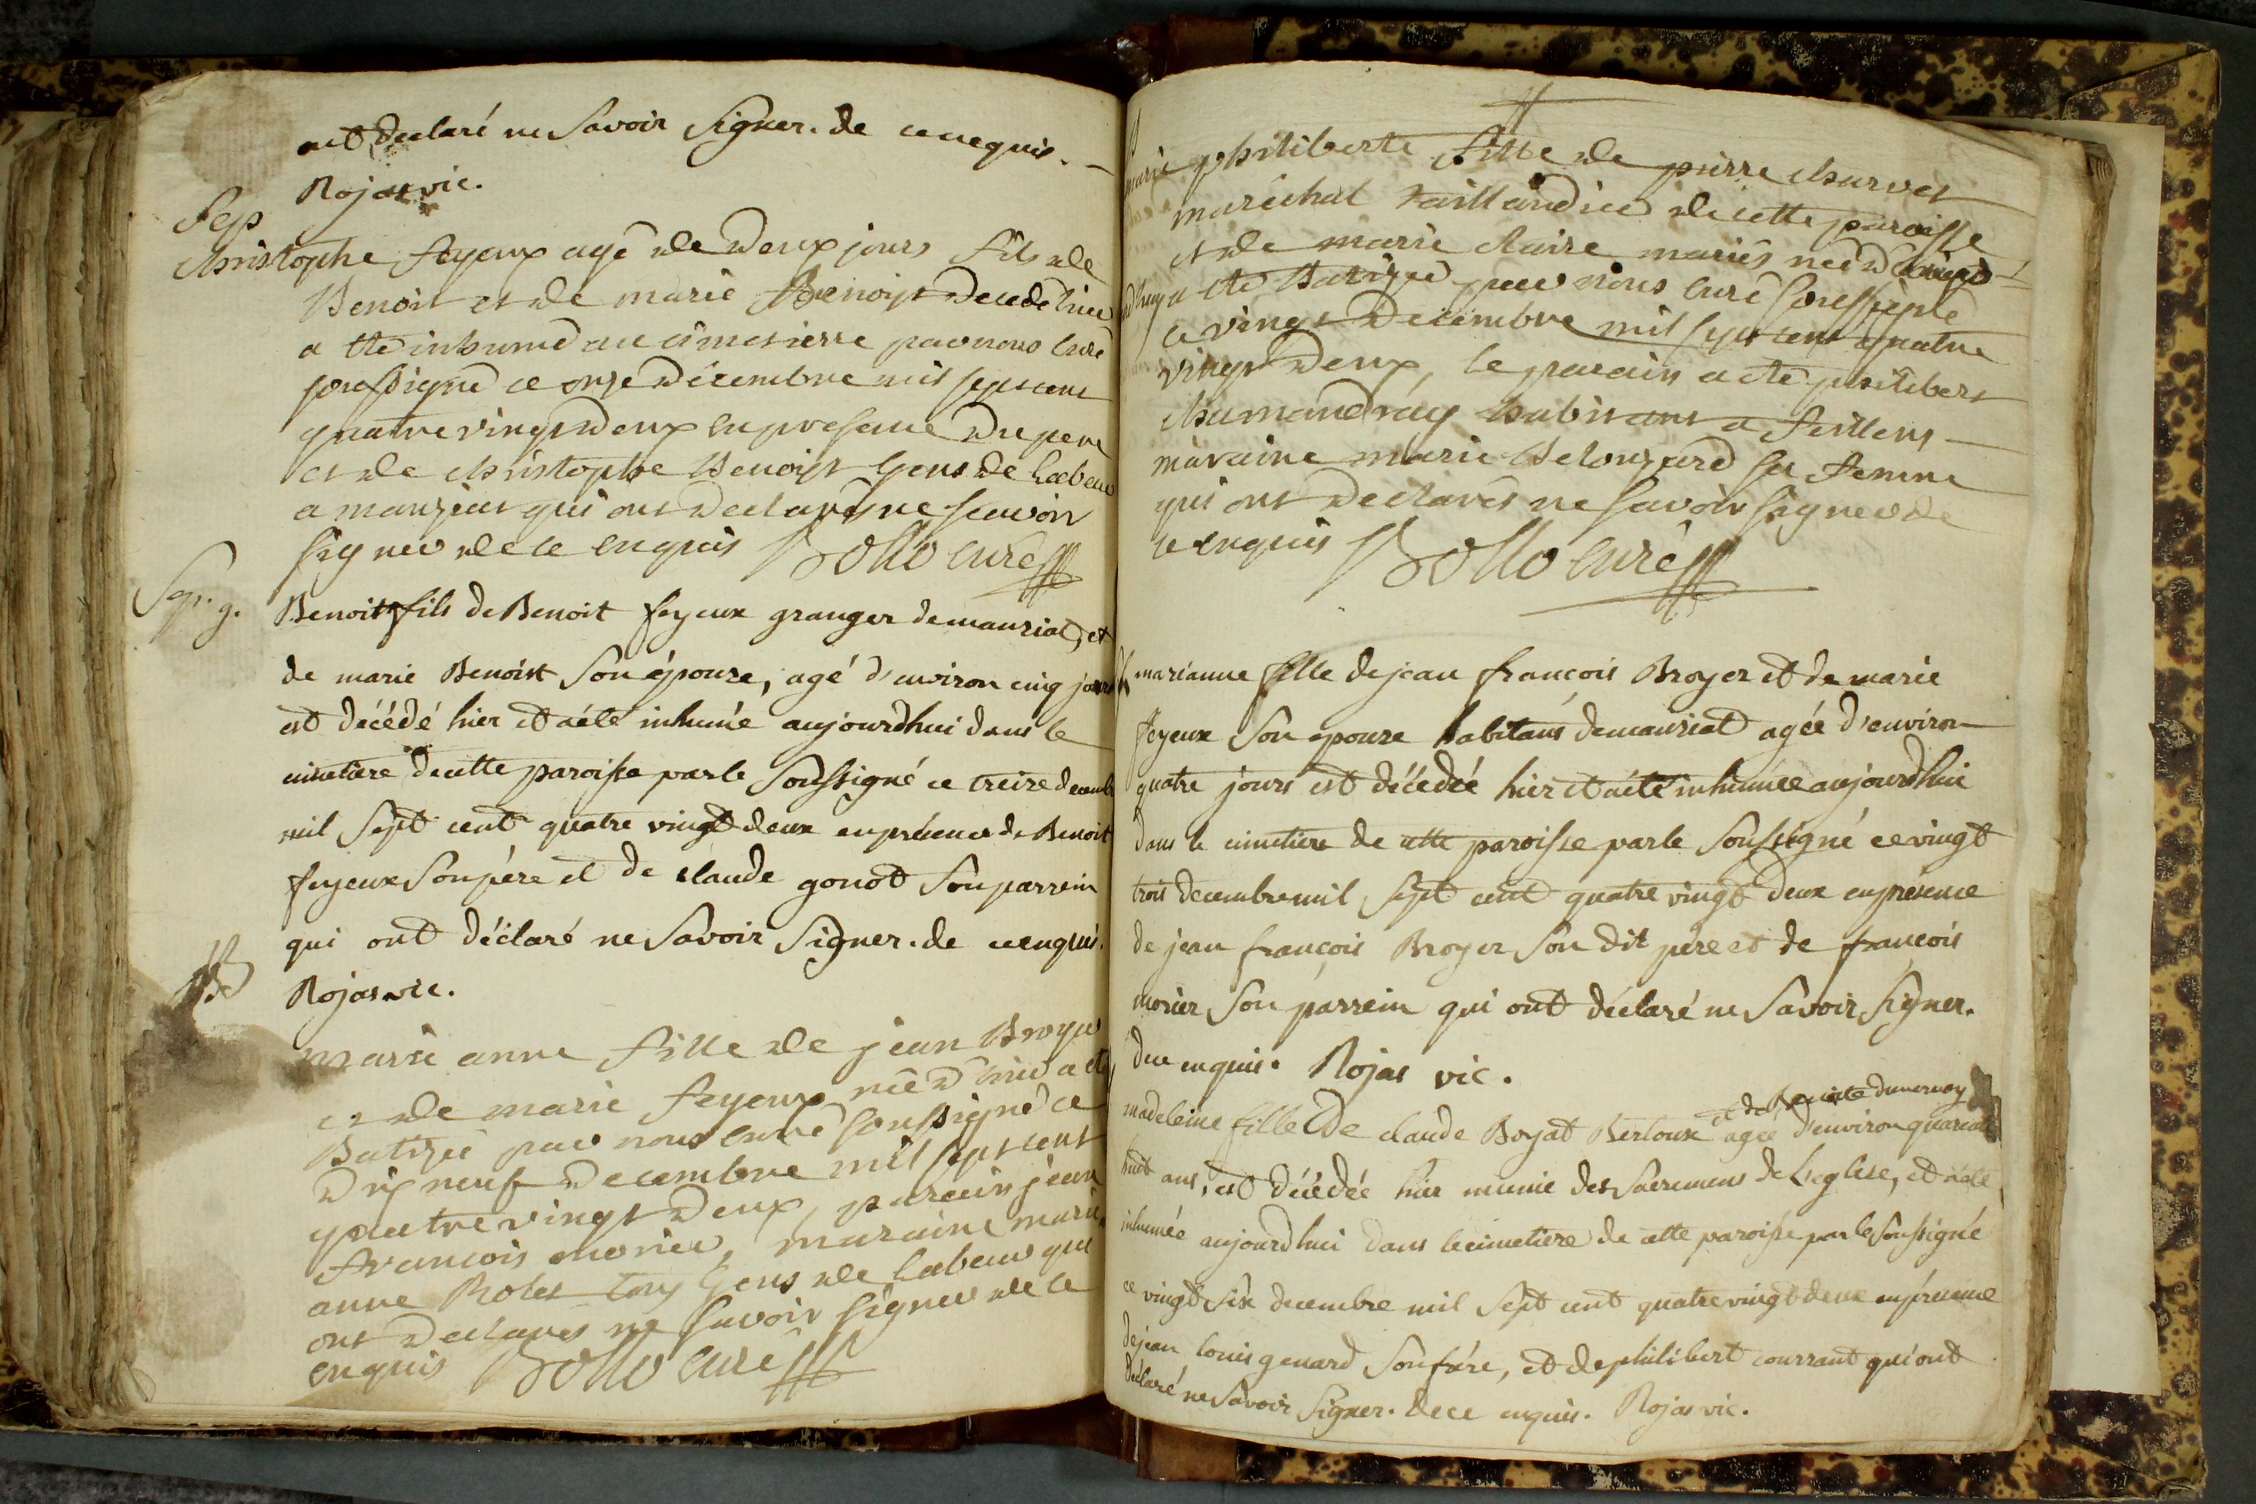 ont declaré ne Savoir Signer. de ce enquis. —
Rojas vic.
Sep
Christophe feyeux agé de Deux jours fils de
Benoit et de marie Benoist Decedé hier
a été inhumé au cimetierre par nous Curé
soussigné ce onze Décembre mil sept cent
quatre vingt Deux en presence Du pere
et de Christophe Benoist Gens de Labeur
a manziat qui ont Declarés ne scavoir
signer de ce enquis Bollo Curé
Sep. g.
Benoit fils de Benoit feyeux granger de manziat, et
de marie Benoist Son épouze, agé d'environ cinq jours
est décédé hier et a été inhumée aujourdhui dans le
cimetiere de cette paroisse par le Soussigné ce treize decembr
mil Sept cent quatre vingt deux en présence de Benoit
feyeux Son pére et de claude gonot Son parrein
qui ont déclaré ne Savoir Signer. de ce enquis.
Rojas vic.
marie anne fille de jean Broyer
et de marie feyeux née D'hier a été
Batizée par nous curé soussigné ce
Dix neuf Decembre mil sept cent
quatre vingt Deux, parain jean
francois morier, maraine marie
anne Rolet tous Gens de Labeur qui
ont Declarés ne savoir signer de ce
enquis Bollo curé
marie philiberte fille de pierre Charvet
maréchal taillandier de cette paroisse
et de marie Claire mariés née D'aujo-
urdhuy a été Batizée par nous curé soussigné
ce vingt Decembre mil sept cent quatre
vingt Deux, le parain a été philibert
Chamandray habitant a feillens —
maraine marie Belouzard sa femme
qui ont Declarés ne savoir signer de
ce enquis Bollo curé
marianne fille de jean françois Broyer et de marie
feyeux Son épouze habitans de manziat agée d'environ
quatre jours est décédée hier et a été inhumée aujourdhui
dans le cimetiere de cette paroisse par le Soussigné ce vingt
trois decembre mil Sept cent quatre vingt deux en présence
de jean françois Broyer Son dit pere et de françois
morier Son parrein qui ont déclaré ne Savoir Signer.
de ce enquis. Rojas vic.
et de Benoite duvernay
madeleine fille de claude Boyat Bertoux agée d'environ quarante
huit ans, est décédée hier munie des Sacremens de l'eglise, et a été
inhumée aujourdhui dans le cimetiere de cette paroisse par le Soussigné
ce vingt Six decembre mil Sept cent quatre vingt deux en présence
de jean louis genard Son frére, et de philibert courrant qui ont
déclaré ne Savoir Signer. de ce enquis. Rojas vic.